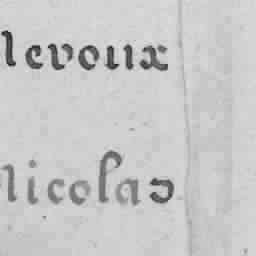 levoux
Nicolas